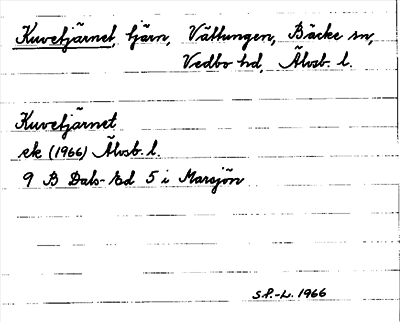 Kuvetjärnet, tjärn, Vättungen, Bäcke sn,
Vedbo hd, Älvsb. l.
Kuvetjärnet
ek (1966) Älvsb. l.
9 B Dals-Ed 5 i Marsjön
S.P.-L. 1966